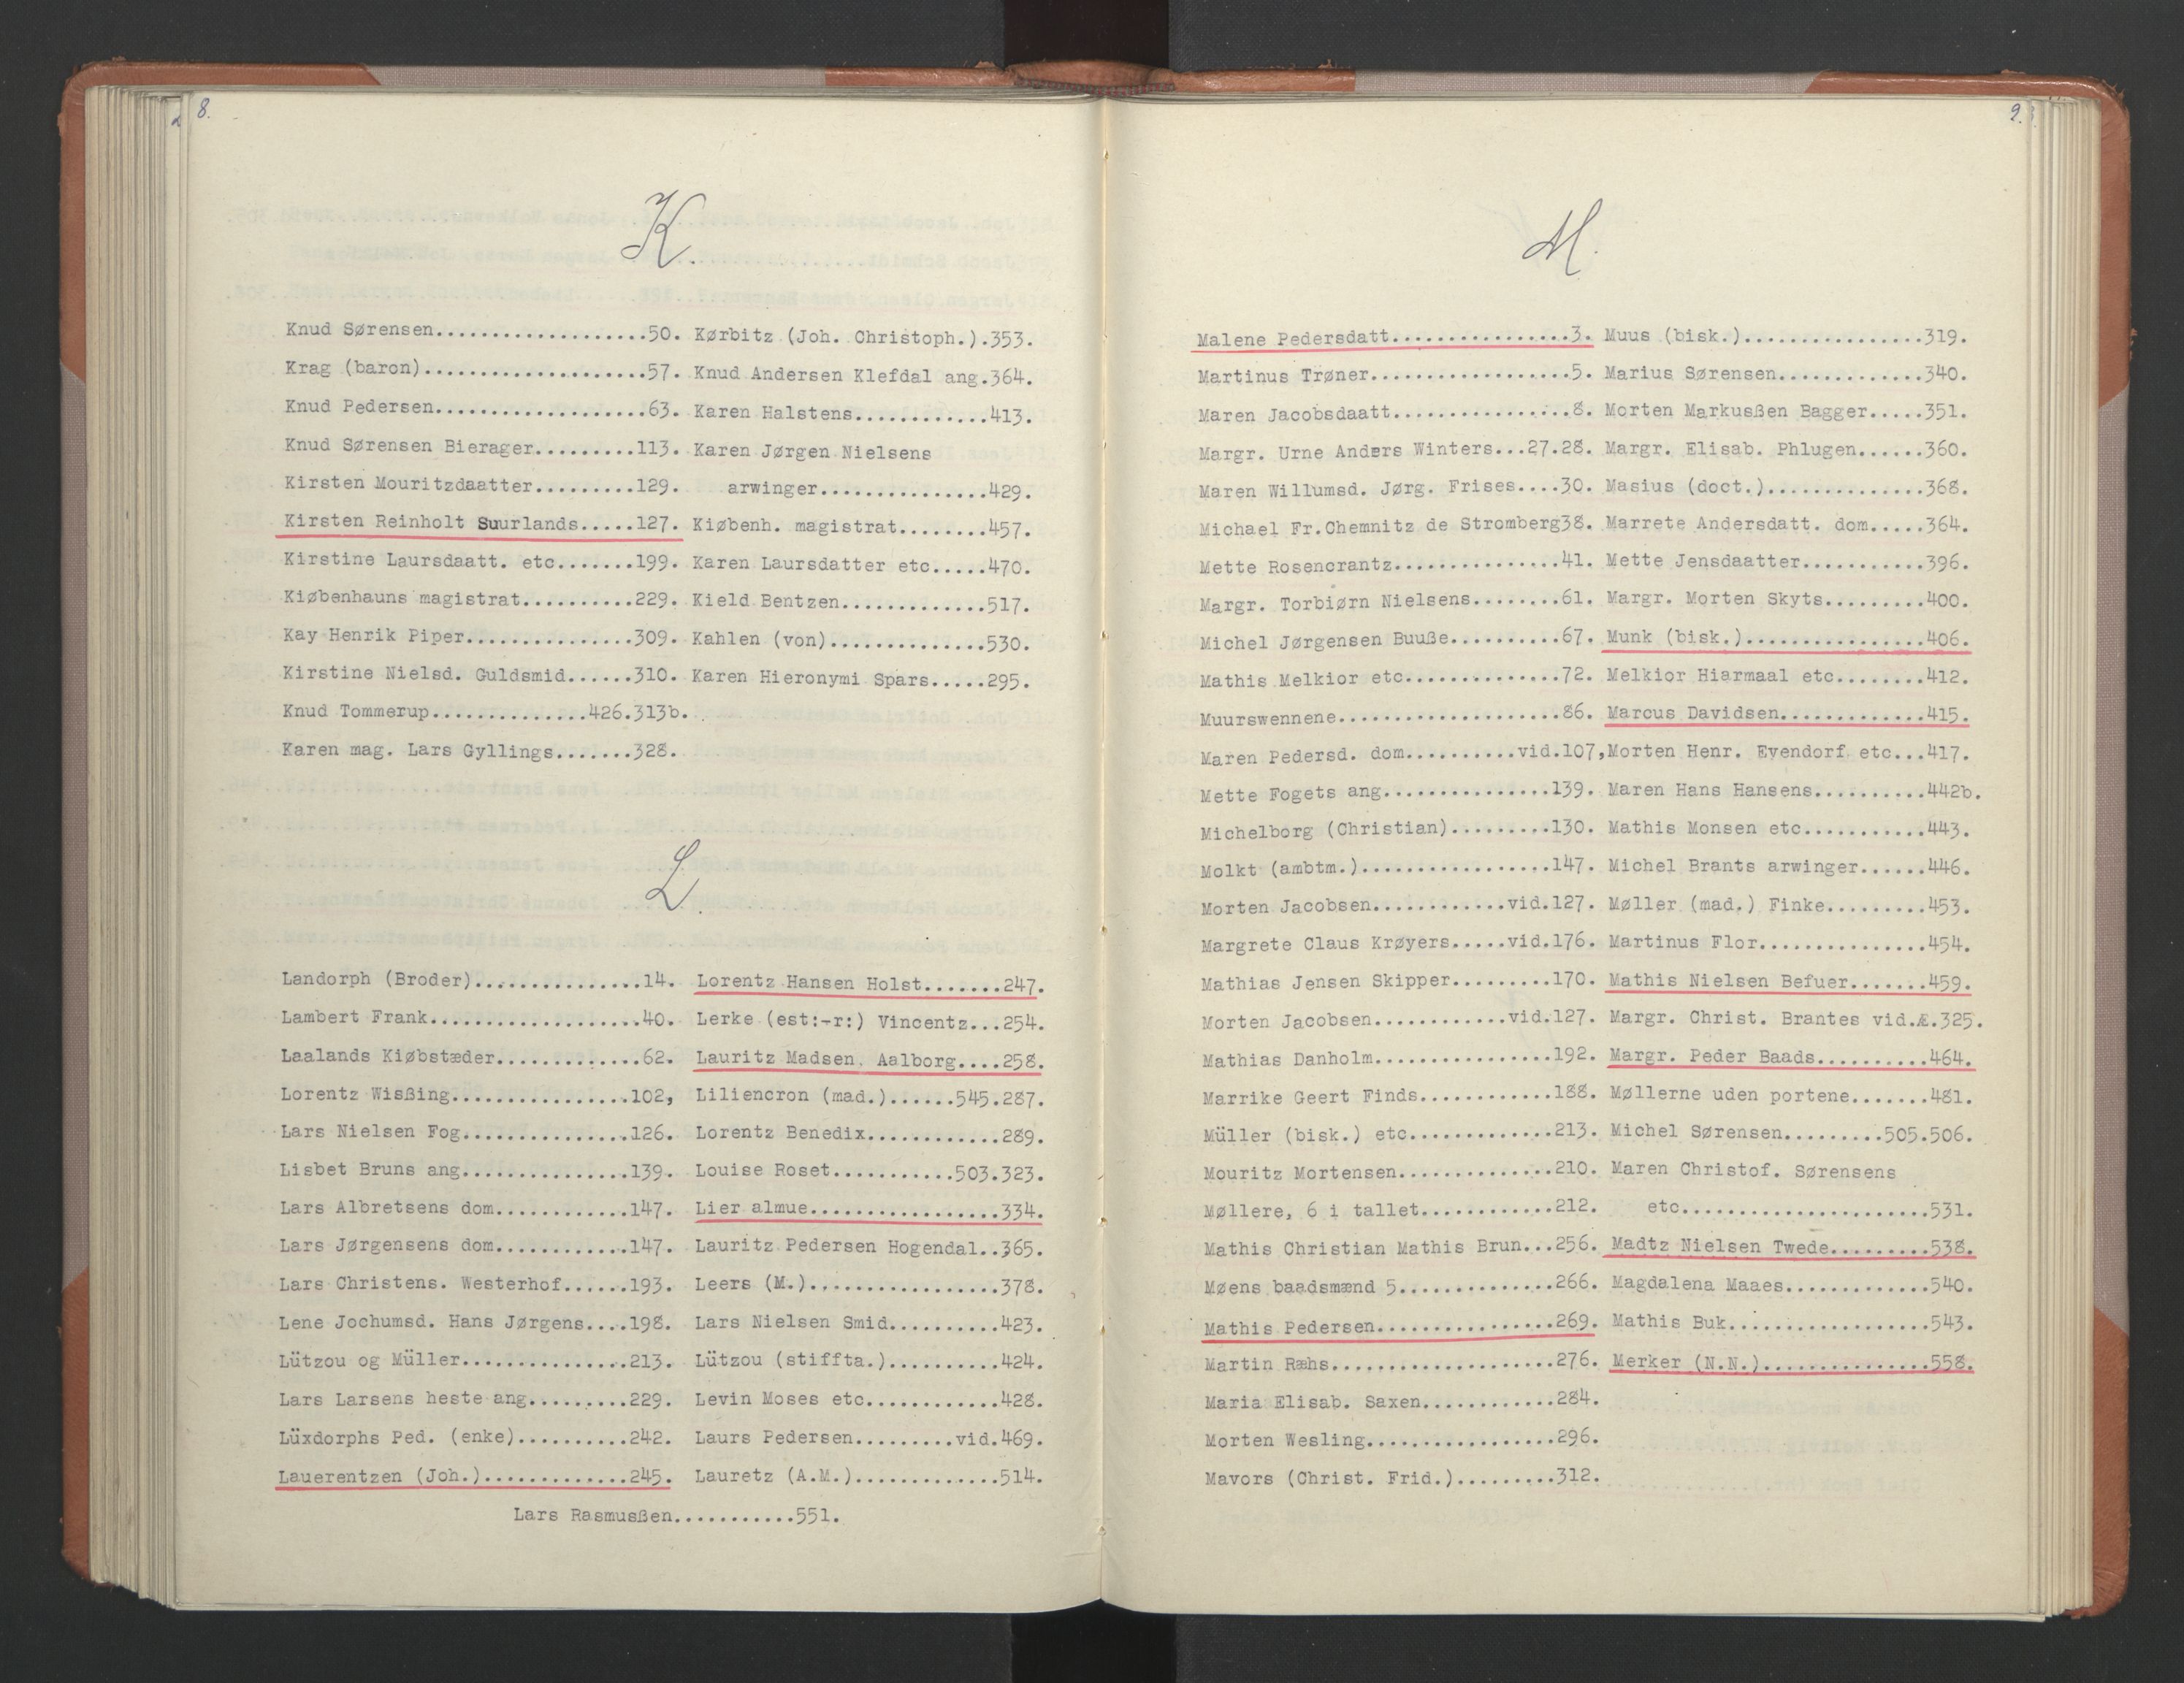 8.
K.
Knud Sørensen...................50.
Krag (baron)....................57.
Knud Pedersen...................63.
Knud Sørensen Bierager.........113.
Kirsten Mouritzdaatter.........129.
Kirsten Reinholt Suurlands.....127.
Kirstine Laursdaatt. etc.......199.
Kiøbenhauns magistrat..........229.
Kay Henrik Piper...............309.
Kirstine Nielsd. Guldsmid......310.
Knud Tommerup..............426.313b.
Karen mag. Lars Gyllings.......328.
Kørbitz (Joh. Christoph.).353.
Knud Andersen Klefdal ang.364.
Karen Halstens............413.
Karen Jørgen Nielsens
arwinger...............429.
Kiøbenh. magistrat........457.
Karen Laursdatter etc.....470.
Kield Bentzen.............517.
Kahlen (von)..............530.
Karen Hieronymi Spars.....295.
L.
Landorph (Broder)...............14.
Lambert Frank...................40.
Laalands Kiøbstæder.............62.
Lorentz Wisßing................102,
Lars Nielsen Fog...............126.
Lisbet Bruns ang...............139.
Lars Albretsens dom............147.
Lars Jørgensens dom............147.
Lars Christens. Westerhof......193.
Lene Jochumsd. Hans Jørgens....198.
Lützou og Müller...............213.
Lars Larsens heste ang.........229.
Lüxdorphs Ped. (enke)..........242.
Lauerentzen (Joh.).............245.
Lorentz Hansen Holst.......247.
Lerke (est:-r:) Vincentz...254.
Lauritz Madsen, Aalborg....258.
Liliencron (mad.)......545.287.
Lorentz Benedix............289.
Louise Roset...........503.323.
Lier almue.................334.
Lauritz Pedersen Hogendal..365.
Leers (M.).................378.
Lars Nielsen Smid..........423.
Lützou (stiffta.)..........424.
Levin Moses etc............428.
Laurs Pedersen.........vid.469.
Lauretz (A.M.).............514.
Lars Rasmusßen...........551.
9.
M.
Malene Pedersdatt................3.
Martinus Trøner..................5.
Maren Jacobsdaatt................8.
Margr. Urne Anders Winters...27.28.
Maren Willumsd. Jørg. Frises....30.
Michael Fr.Chemnitz de Stromberg38.
Mette Rosencrantz...............41.
Margr. Torbiørn Nielsens........61.
Michel Jørgensen Buuße..........67.
Mathis Melkior etc..............72.
Muurswennene....................86.
Maren Pedersd. dom..........vid.107,
Mette Fogets ang...............139.
Michelborg (Christian).........130.
Molkt (ambtm.).................147.
Morten Jacobsen............vid.127.
Margrete Claus Krøyers.....vid.176.
Mathias Jensen Skipper.........170.
Morten Jacobsen............vid.127.
Mathias Danholm................192.
Marrike Geert Finds............188.
Müller (bisk.) etc.............213.
Mouritz Mortensen..............210.
Møllere, 6 i tallet............212.
Mathis Christian Mathis Brun...256.
Møens baadsmænd 5..............266.
Mathis Pedersen................269.
Martin Ræhs....................276.
Maria Elisab. Saxen............284.
Morten Wesling.................296.
Mavors (Christ. Frid.).........312.
Muus (bisk.)................319.
Marius Sørensen.............340.
Morten Markusßen Bagger.....351.
Margr. Elisab. Phlugen......360.
Masius (doct.)..............368.
Marrete Andersdatt. dom.....364.
Mette Jensdaatter...........396.
Margr. Morten Skyts.........400.
Munk (bisk.)................406.
Melkior Hiarmaal etc........412.
Marcus Davidsen.............415.
Morten Henr. Evendorf etc...417.
Maren Hans Hansens..........442b.
Mathis Monsen etc...........443.
Michel Brants arwinger......446.
Møller (mad.) Finke.........453.
Martinus Flor...............454.
Mathis Nielsen Befuer.......459.
Margr. Christ. Brantes vid.Æ.325.
Margr. Peder Baads..........464.
Møllerne uden portene.......481.
Michel Sørensen.........505.506.
Maren Christof. Sørensens
etc......................531.
Madtz Nielsen Twede.........538.
Magdalena Maaes.............540.
Mathis Buk..................543.
Merker (N.N.)...............558.